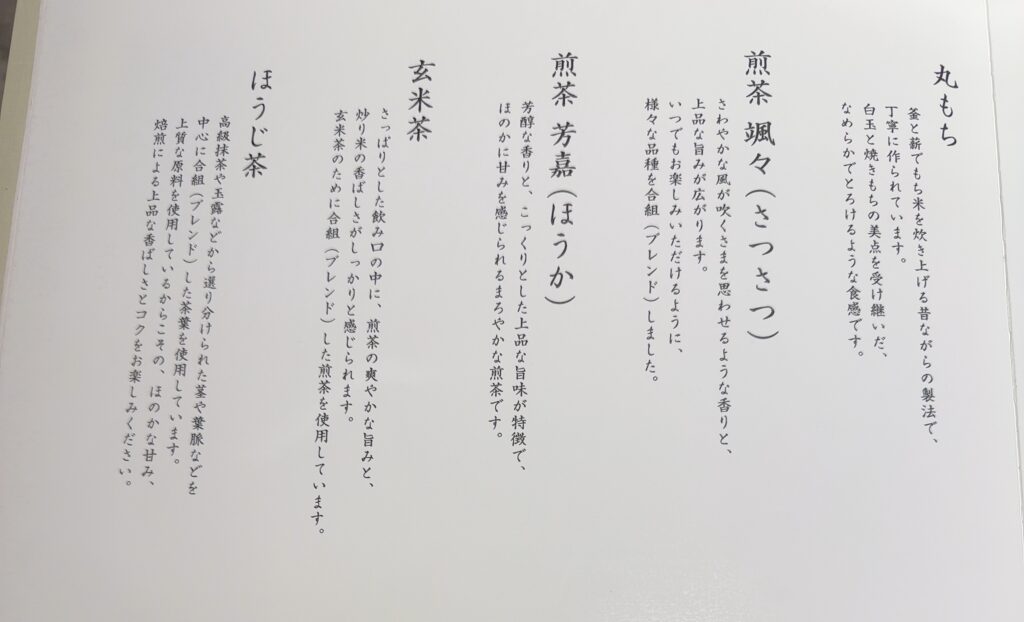 丸もち
釜と薪でもち米を炊き上げる昔ながらの製法で、
丁寧に作られています。
白玉と焼きもちの美点を受け継いだ、
なめらかでとろけるような食感です。
煎茶 颯々（さつさつ）
さわやかな風が吹くさまを思わせるような香りと、
上品な旨みが広がります。
いつでもお楽しみいただけるように、
様々な品種を合組（ブレンド）しました。
煎茶 芳嘉（ほうか）
芳醇な香りと、こっくりとした上品な旨味が特徴で、
ほのかに甘みを感じられるまろやかな煎茶です。
玄米茶
さっぱりとした飲み口の中に、煎茶の爽やかな旨みと、
炒り米の香ばしさがしっかりと感じられます。
玄米茶のために合組（ブレンド）した煎茶を使用しています。
ほうじ茶
高級抹茶や玉露などから選り分けられた茎や葉脈などを
中心に合組（ブレンド）した茶葉を使用しています。
上質な原料を使用しているからこその、ほのかな甘み、
焙煎による上品な香ばしさとコクをお楽しみください。